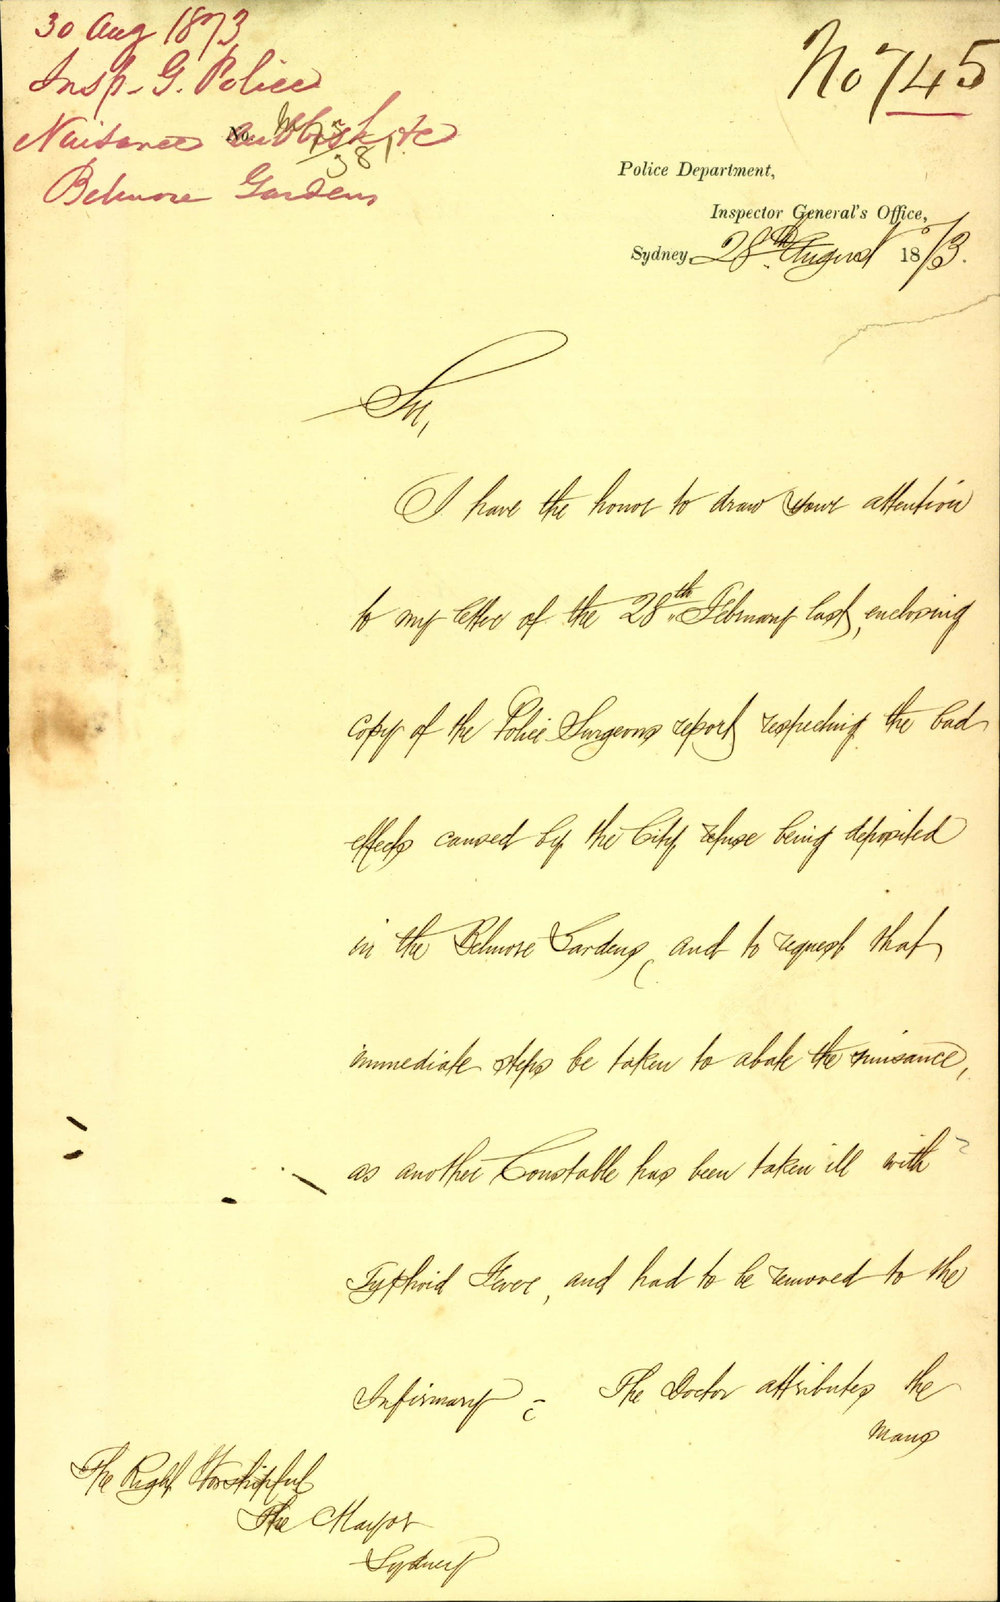 30 Aug 1873
Insp. G. Police
Nuisance Rubbish &c
Belmore Gardens
No 745
No. 73
381
Police Department,
Inspector General's Office,
Sydney, 28th August 1873.
Sir,
I have the honor to draw your attention
to my letter of the 28th February last, enclosing
copy of the Police Surgeons report respecting the bad
effects caused by the City refuse being deposited
in the Belmore Gardens, and to request that
immediate steps be taken to abate the nuisance,
as another Constable has been taken ill with
Typhoid Fever, and had to be removed to the
Infirmary. The Doctor attributes the
mans
The Right Worshipful
The Mayor
Sydney